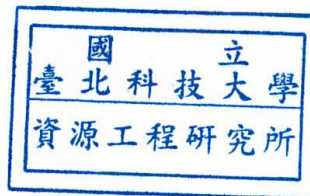 國立
臺北科技大學
資源工程研究所